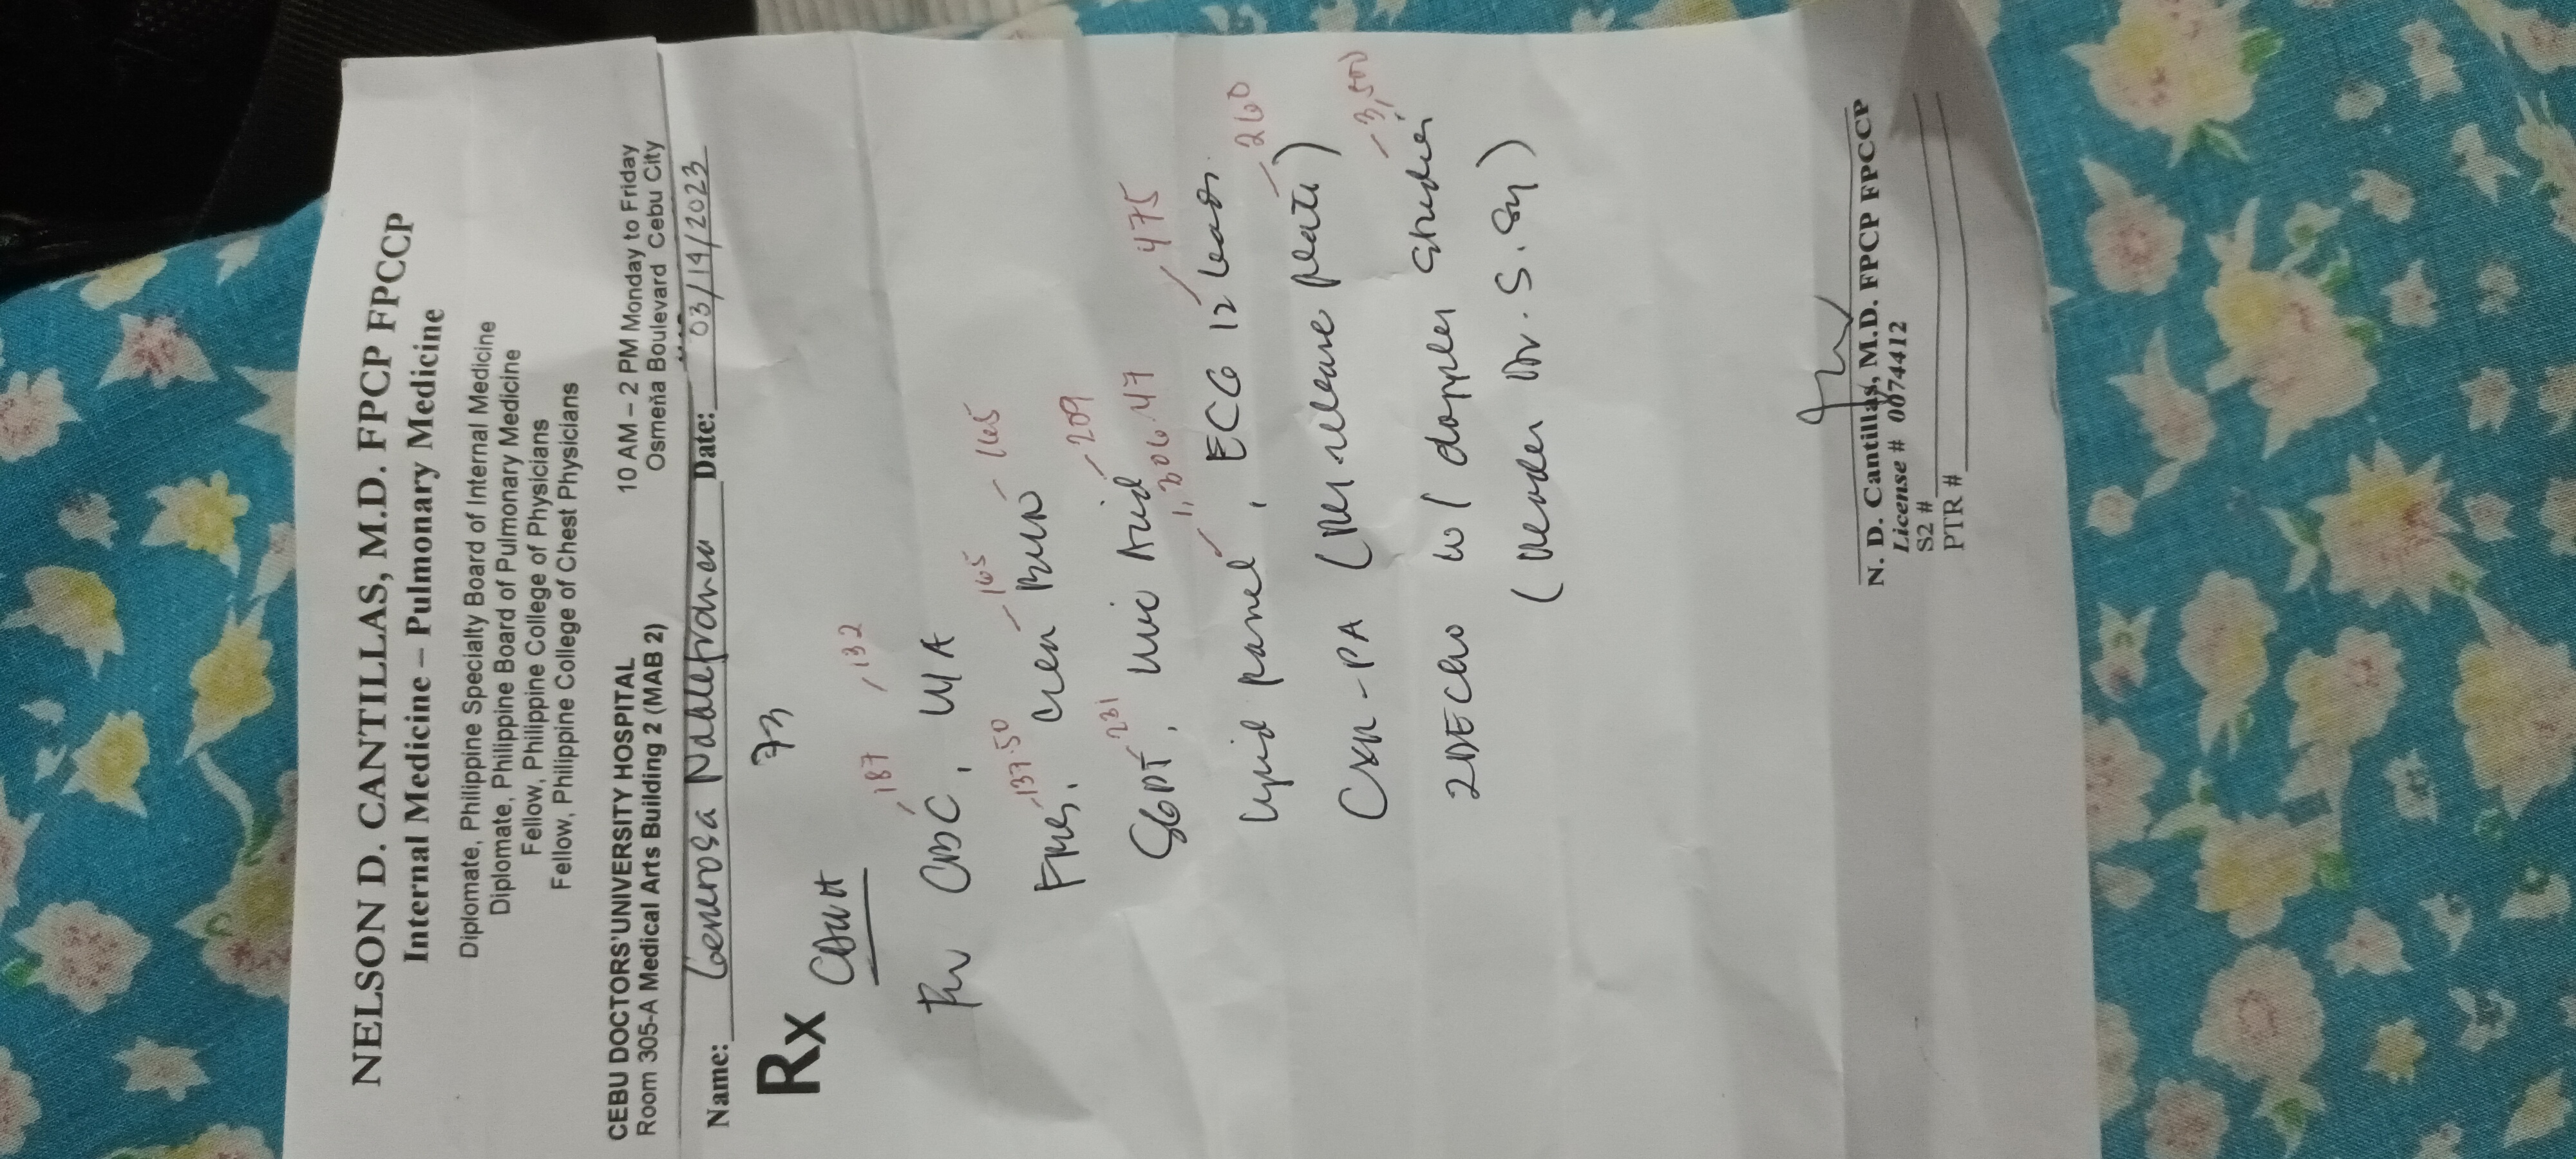 NELSON D. CANTILLAS, M.D. FPCP FPCCP
Internal Medicine – Pulmonary Medicine
Diplomate, Philippine Specialty Board of Internal Medicine
Diplomate, Philippine Board of Pulmonary Medicine
Fellow, Philippine College of Physicians
Fellow, Philippine College of Chest Physicians
CEBU DOCTORS'UNIVERSITY HOSPITAL
Room 305-A Medical Arts Building 2 (MAB 2)
10 AM – 2 PM Monday to Friday
Osmeña Boulevard Cebu City
Name: Generosa Date: 03/14/2023
73
Rx
CDUH
187 , 132
CBC, U/A
-137.50 - 165 - 165
FBS, Crea, BUN
- 231 - 209
SGPT, Uric Acid
1,306.47 475
Lipid panel, ECG 12 leads
- 260
CXR - PA (Pls release plate)
- 3,500
2DEcho w/ doppler studies
(Reader Dr. S. Sy)
N. D. Cantillas, M.D. FPCP FPCCP
License # 0074412
S2 #
PTR #